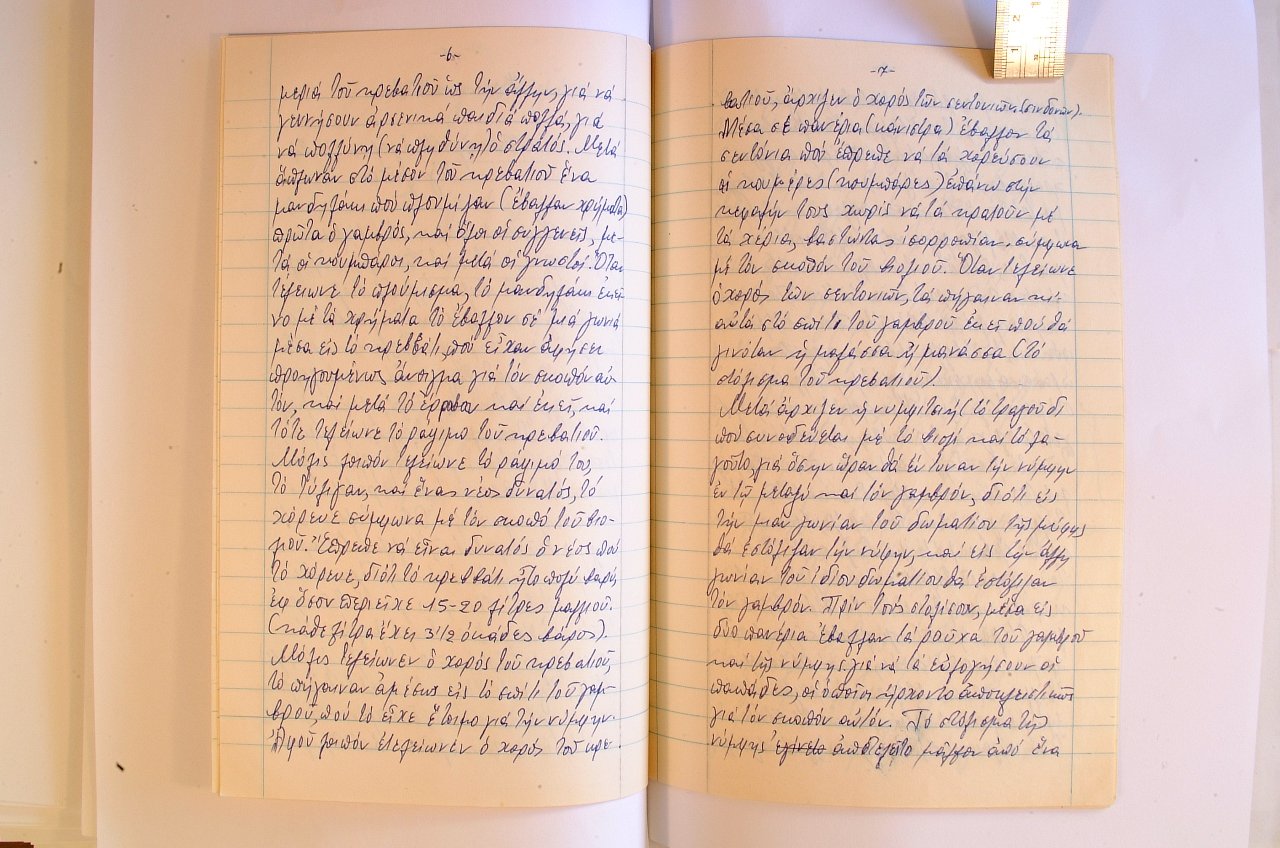 -6-
μεριά τοῦ κρεβατιοῦ ὡς τήν ἄλλην, γιά νά
γεννήσουν ἀρσενικά παιδιά πολλά, γιά
νά πολλύνῃ (νά πληθύνῃ) ὁ στρατός. Μετά
ἅπλωναν στό μέσον τοῦ κρεβατιοῦ ἕνα
μανδηλάκι πού πλουμίζαν (ἔβαλλαν χρήματα)
πρῶτα ὁ γαμβρός, καί ὅλοι οἱ συγγενεῖς, με-
τά οἱ κουμπάροι, καί μετά οἱ γνωστοί. Ὅταν
τέλειωνε τό πλούμισμα, τό μανδηλάκι ἐκεῖ-
νο μέ τά χρήματα τό ἔβαλλον σέ μιά γωνιά
μέσα εἰς τό κρεββάτι, πού εἶχαν ἀφήσει
προηγουμένως ἄνοιγμα γιά τόν σκοπόν αὐ-
τόν, καί μετά τό ἔρραβαν καί ἐκεῖ, καί
τότε τελείωνε τό ράψιμο τοῦ κρεβατιοῦ.
Μόλις λοιπόν τελείωνε τό ράψιμό του,
τό τύλιγαν, καί ἕνας νέος δυνατός, τό
χόρευε σύμφωνα μέ τόν σκοπό τοῦ βιο-
λιοῦ. Ἔπρεπε νά εἶναι δυνατός ὁ νέος πού
τό χόρευε, διότι τό κρεββάτι ἦτο πολύ βαρύ
ἐφ' ὅσον περιεῖχε 15-20 λίτρες μαλλιοῦ.
(κάθε λίτρα ἔχει 3 1/2 ὀκάδες βάρος).
Μόλις τελείωνεν ὁ χορός τοῦ κρεβατιοῦ,
τό πήγαιναν ἀμέσως εἰς τό σπίτι τοῦ γαμ-
βροῦ, πού τό εἶχε ἕτοιμο γιά τήν νύμφην.
Ἀφοῦ λοιπόν ἐτελείωνεν ὁ χορός τοῦ κρε-
-7-
βατιοῦ, ἄρχιζεν ὁ χορός τῶν σεντονιῶν (σινδονῶν).
Μέσα σέ πανέρια (κάνιστρα) ἔβαλλον τά
σεντόνια πού ἔπρεπε νά τά χορεύσουν
αἱ κουμέρες (κουμπάρες) ἐπάνω στήν
κεφαλήν τους χωρίς νά τά κρατοῦν μέ
τά χέρια, βαστώντας ἰσορροπίαν. σύμφωνα
μέ τόν σκοπόν τοῦ βιολιοῦ. Ὅταν τελείωνε
ὁ χορός τῶν σεντονιῶν, τά πήγαιναν κι'
αὐτά στό σπίτι τοῦ γαμβροῦ ἐκεῖ πού θά
γινόταν ἡ μαλάσσα ἤ μανάσσα (τό
στόλισμα τοῦ κρεβατιοῦ).
Μετά ἄρχιζεν ἡ νυμφιτσιή (τό τραγοῦδι
πού συνοδεύεται μέ τό βιολί καί τό λα-
γοῦτο, γιά ὅσην ὥραν θά ἔντυναν τήν νύμφην
ἐν τῷ μεταξύ καί τόν γαμβρόν, διότι εἰς
τήν μιάν γωνίαν τοῦ δωματίου τῆς νύφης
θά ἐστόλιζαν τήν νύφην, καί εἰς τήν ἄλλη
γωνίαν τοῦ ἰδίου δωματίου θά ἐστόλιζαν
τόν γαμβρόν. Πρίν τούς στολίσουν, μέσα εἰς
δύο πανέρια ἔβαλλαν τά ροῦχα τοῦ γαμβροῦ
καί τῆς νύμφης γιά νά τά εὐλογήσουν οἱ
παπάδες, οἱ ὁποῖοι ἤρχοντο ἀποκλειστικῶς
γιά τόν σκοπόν αὐτόν. Τό στόλισμα τῆς
νύμφης ἐγίνετο ἀπετελεῖτο μᾶλλον ἀπό ἕνα